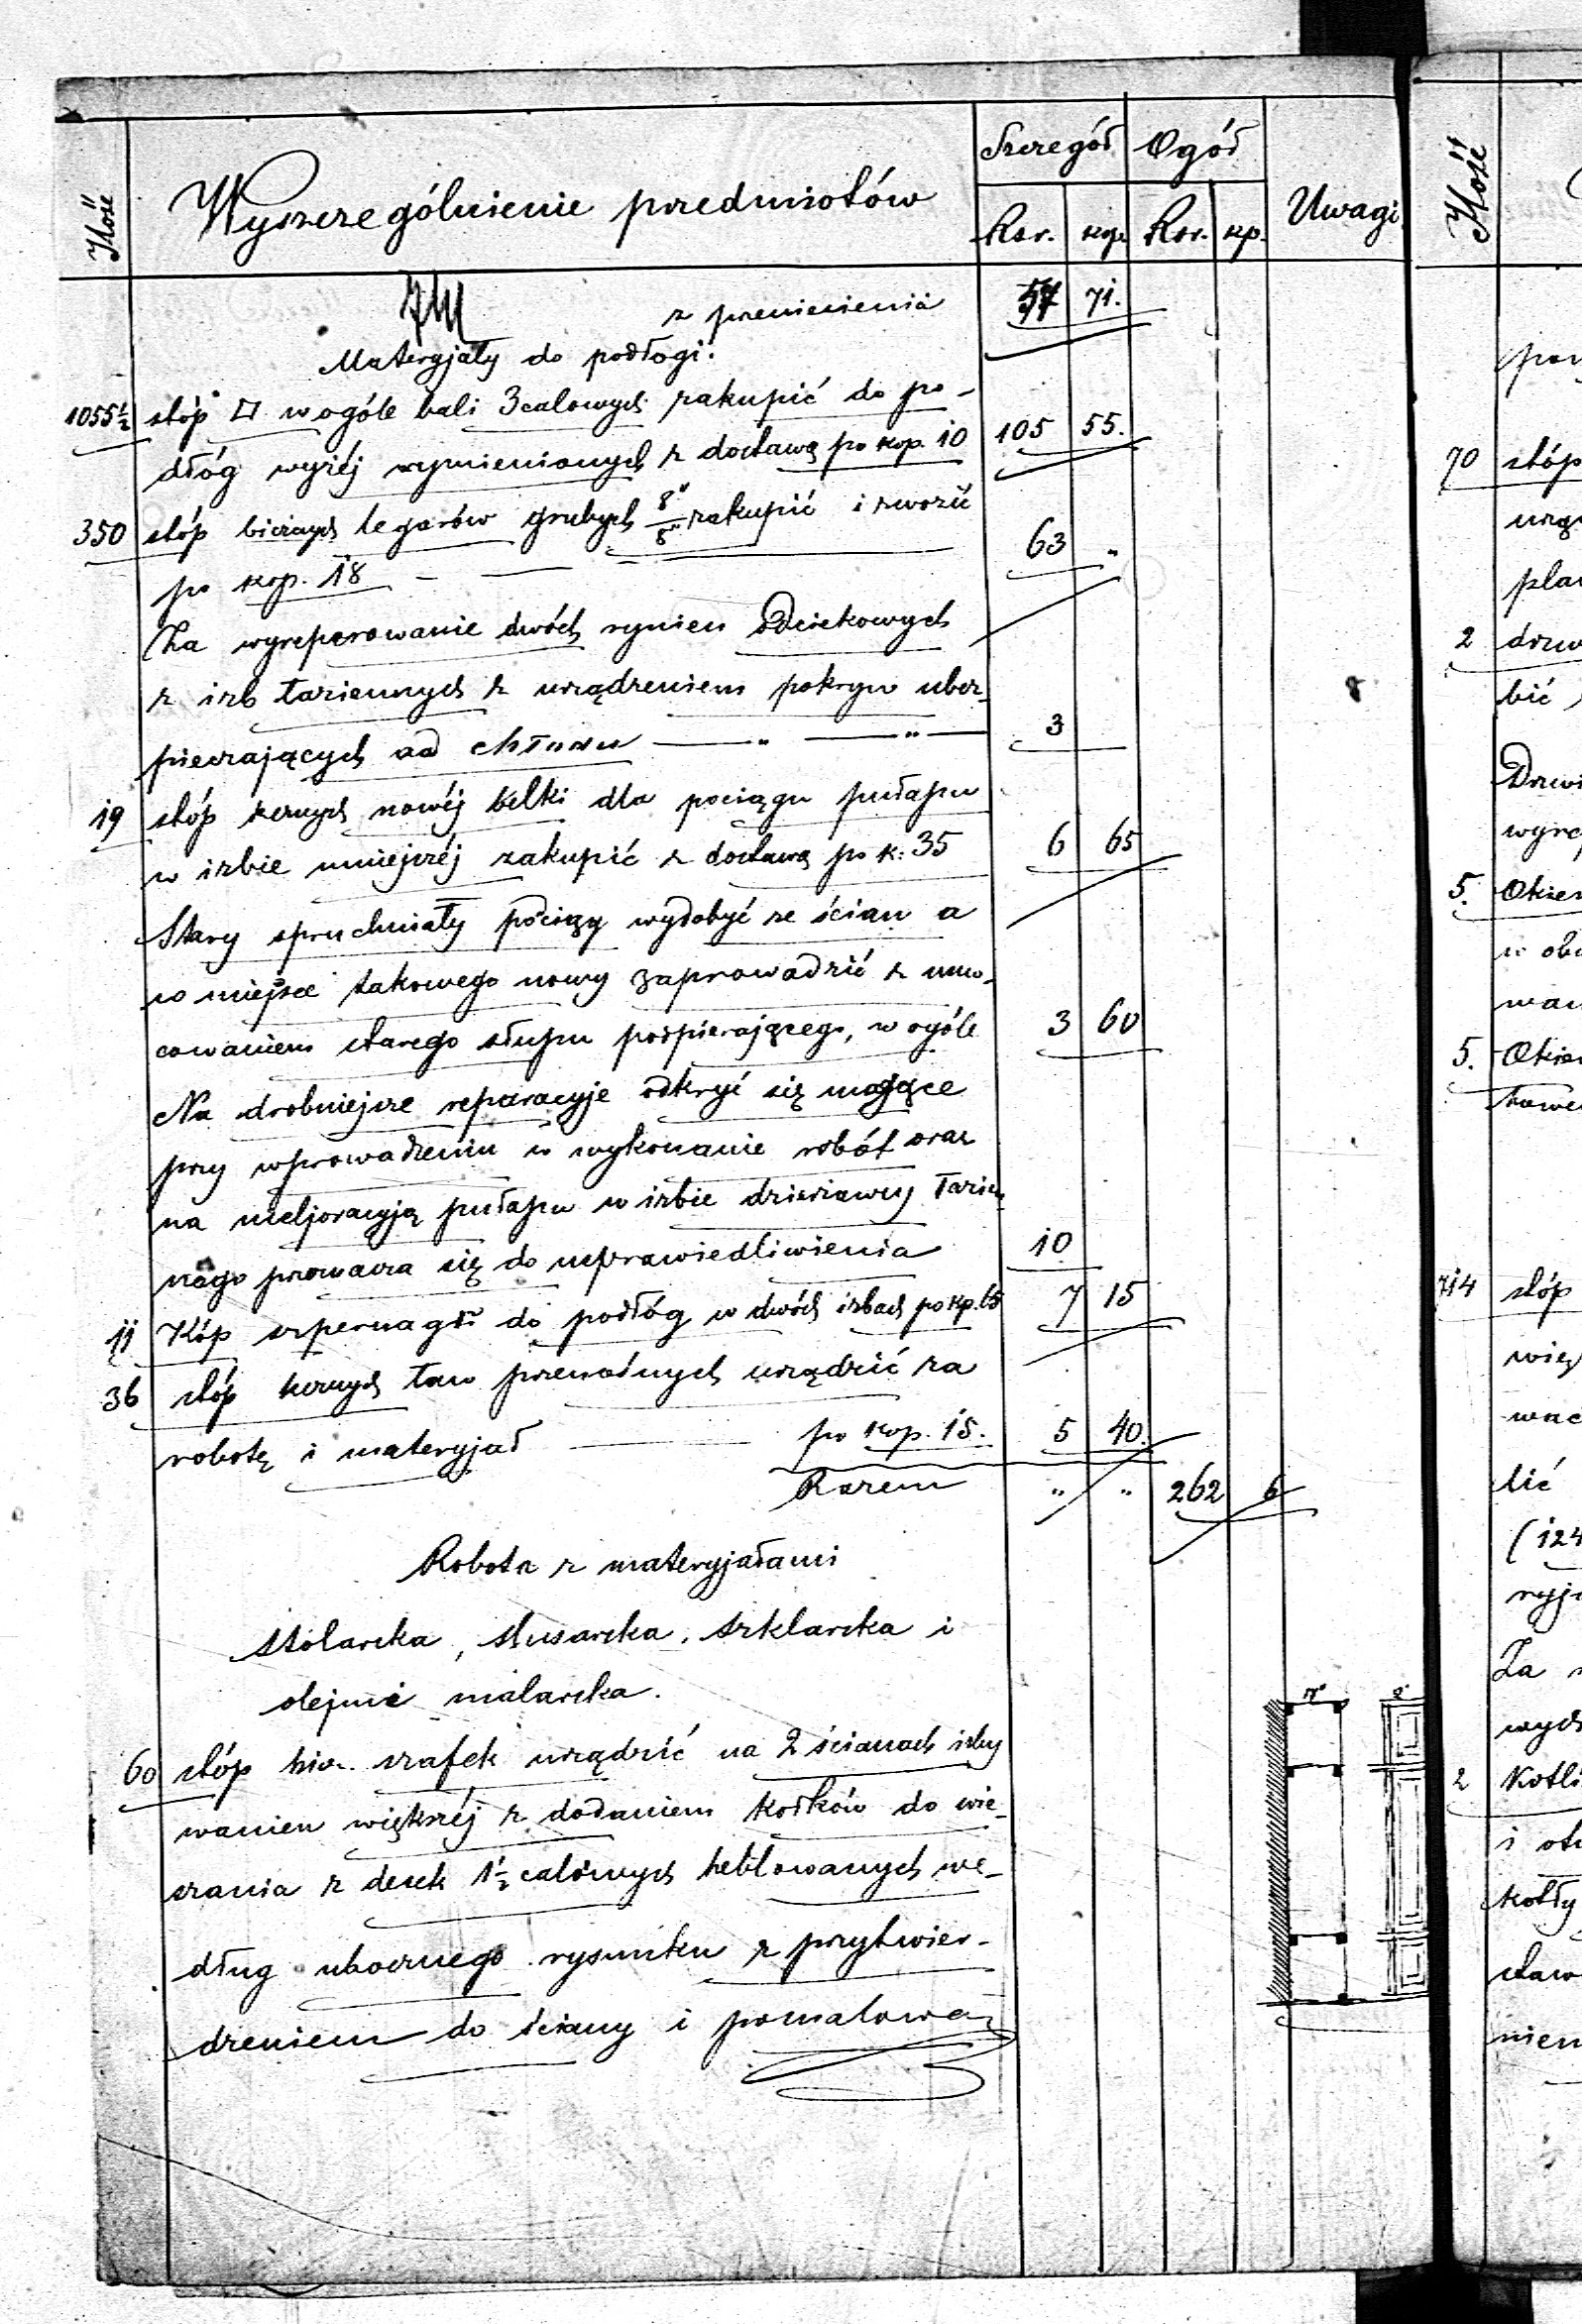 Ilość
Wyszczególnienie przedmiotów
Szczegół
Ogół
Uwagi
Rsr. kop. Rsr. kp.
z przeniesienia 57 71.
Materyjały do podłogi.
1055½ stóp □ w ogóle bali 3calowych zakupić do po-
dłóg wyżéj wymienionych z dostawą po kop. 10 105 55.
350 stóp bieżących legarów grubych 8"/8" zakupić i zwozić
po kop. 18 63 "
Za wyreperowanie dwóch rynien odciekowych
z izb łaziennych z urządzeniem pokryw ubez-
pieczających od chłodu 3
19 stóp nowéj belki dla pociągu pułapu
w izbie mniejszéj zakupić z dostawą po k: 35 6 65
Stary spruchniały pociąg wydobyć ze ścian a
w miejsce takowego nowy zaprowadzić z umo-
cowaniem starego słupu podpierającego, w ogóle 3 60
Na drobniejsze reparacyje odkryć się mogące
przy wprowadzeniu w wykonanie robót oraz
na meljoracyją pułapu w izbie łazien
nego się do usprawiedliwienia 10
11 Kóp szpernagli do podłóg w dwóch izbach po kp. 65 7 15
36 stóp ław urządzić za
robotę i materyjał po kop. 15. 5 40.
Razem " " 262 6
Robota z materyjałami
stolarska, slusarska, szklarska i
olejno malarska.
60 stóp bież. szafek urządzić na 2 ścianach izby
wanien większéj z dodaniem kołków do wie-
szania z desek 1½ calowych heblowanych we-
dług ubocznego rysunku z przytwier-
dzeniem do ściany i pomalowa-
Ilość
70 stóp
2 drzw
bić
Drzwi
5.
5.
714 stóp
lić
Za
2
i
kotły